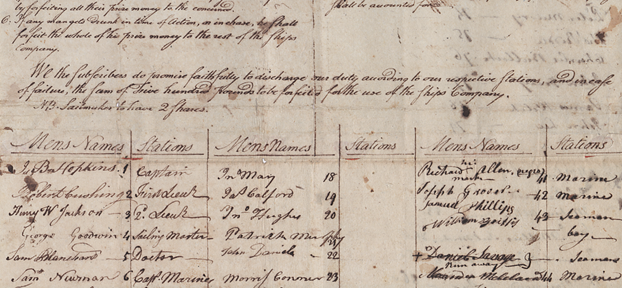 by forfeiting all their prize money to the concerned.
shall be accounted for
6. If any man gets drunk in time of Action, or in chase, he shall
forfeit the whole of his prize money to the rest of the Ships
Company.
We the subscribers do promise faithfully to discharge our duty according to our respective stations, and in case
of failure, the sum of Five hundred Pounds to be forfeited for the use of the Ships Company.
NB. to have 2 Shares.
Mens Names Stations Mens Names Stations Mens Names Stations
Hopkins 1 Captain Jn May 18 Richard his mark Allen (negro) 41 Marine
Robert Cushing 2 First Lieut Js Calford 19 Joseph 42 Marine
Henry W Jackson 3 2. Lieut Jno Hughes 20 Samuel Phillips 43 Seaman
George Goodwin 4 Sailing Master Patrick William boy
Sam Blanchard 5 Doctor John Daniels 22 + Daniel Savage Seaman
Run away
Saml Newman 6 Capt Marines Morris Connor 23 44 Marine